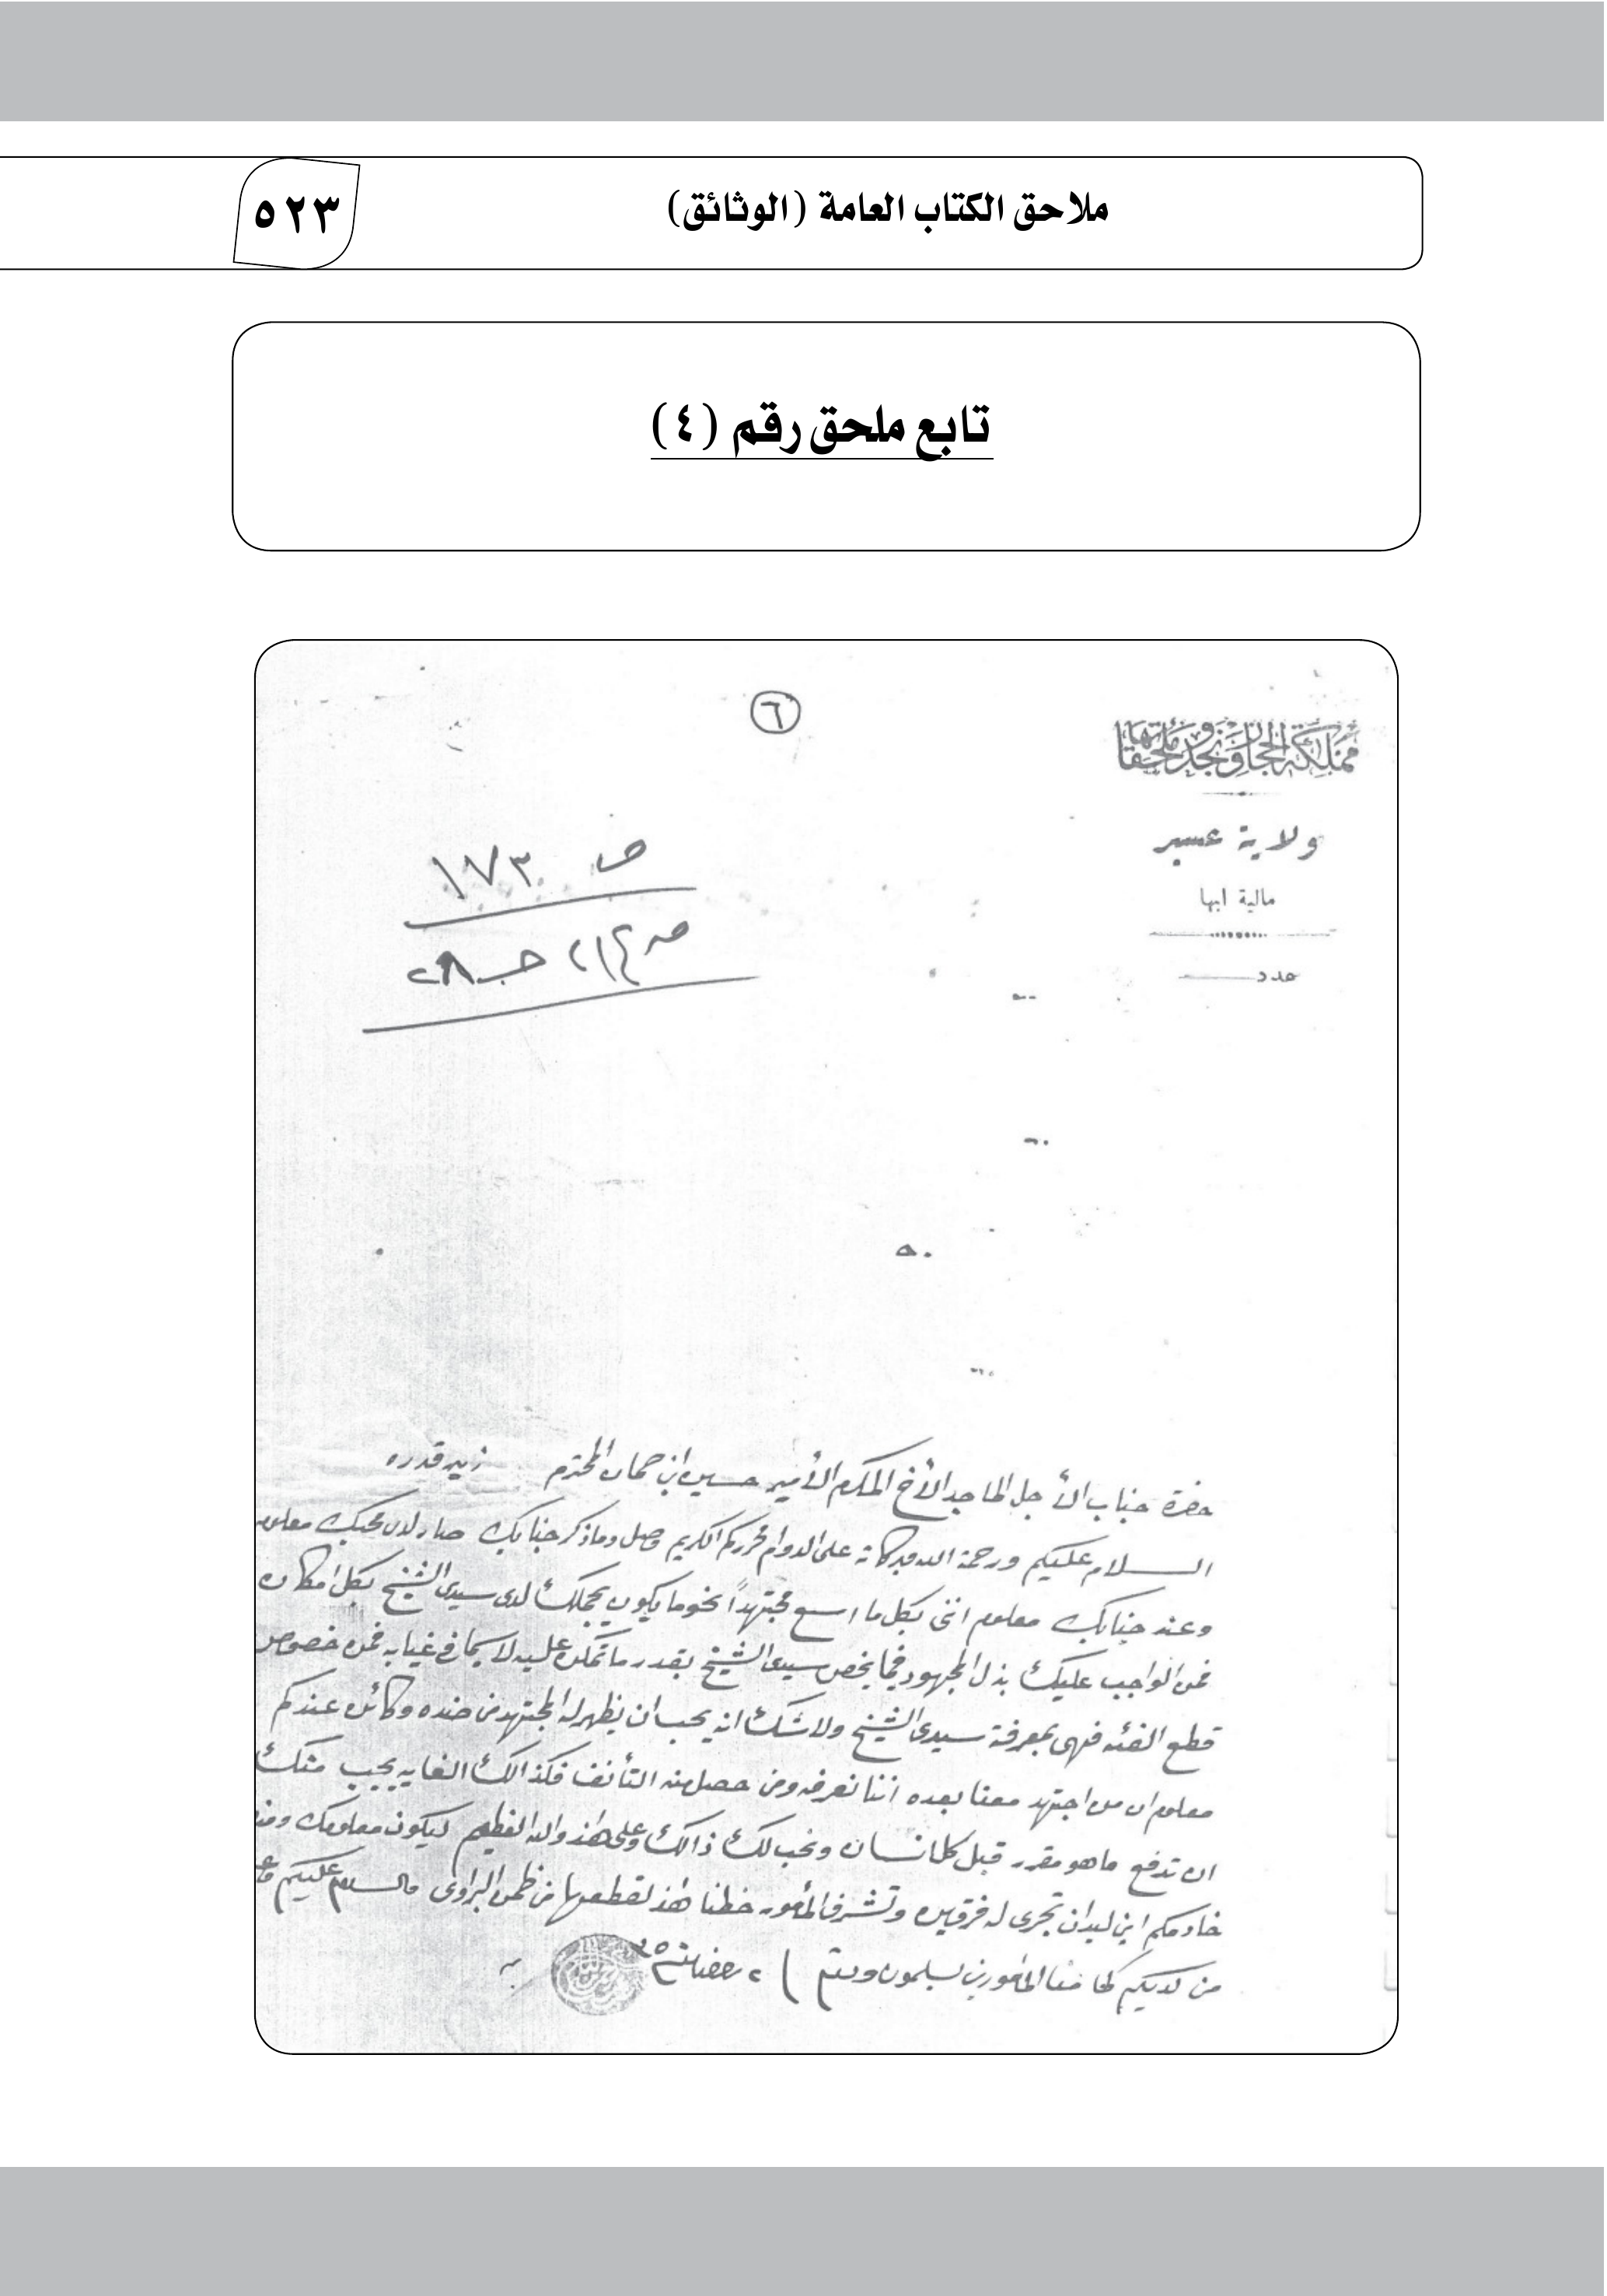 ملاحق الكتاب العامة (الوثائق)
٥٢٣
تابع ملحق رقم (٤)
٦
مملكة الحجاز ونجد وملحقاتها
ولاية عسير
مالية ابها
عدد
ص ١٧٣
حضرة جناب الأجل الماجد الأخ المكرم الأمير حسين ابن المحترم زيد قدره
السلام عليكم ورحمة الله وبركاته على الدوام محرركم الكريم وصل وماذكر جنابك صار لدى محبك معلوم
وعند جنابك معلوم انني بكل ما اسع مجتهداً نحو ما يكون يجملك لدى سيدى الشيخ بكل امكان
فمن الواجب عليك بذل المجهود فيما يخص سيدى الشيخ بقدر ما تمكن عليه لاسيما في غيابه فمن خصوص
قطع الفئه فهي بمعرفة سيدى الشيخ ولاشك انه يحب ان يظهر له المجتهد من ضده وكائن عندكم
معلوم ان من اجتهد معنا بعده اننا نعرفه ومن حصل منه التأنف فكذالك الغايه يجب منك
ان تدفع ماهو مقرر قبل كل انسان ونحب لك ذالك وعلى هذ والله العظيم ليكون معلومك
خادمكم ابن لبدان تجرى له وتشرف المأمور خطنا هذ من السلام عليكم
من لديكم كما منا المأمورين يسلمون ودمتم رمضان